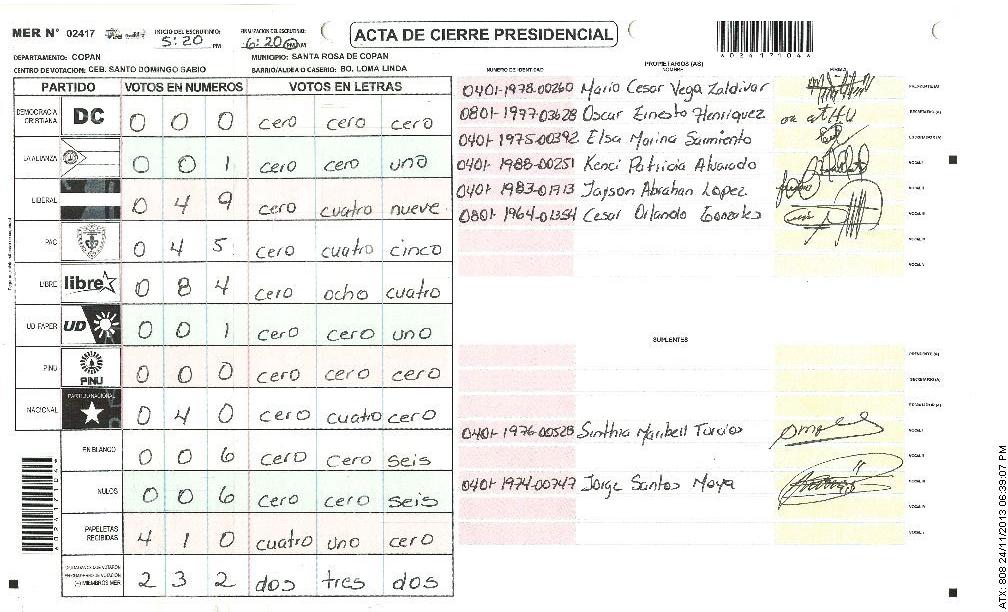 MER N° 02417 INICIO DEL ESCRUTINIO: 5:20 PM FINALIZACION DEL ESCRUTINIO: 6:20 PM AM
ACTA DE CIERRE PRESIDENCIAL
DEPARTAMENTO: COPAN MUNICIPIO: SANTA ROSA DE COPAN
CENTRO DE VOTACION: CEB. SANTO DOMINGO SABIO BARRIO/ALDEA O CASERIO: BO. LOMA LINDA
PARTIDO VOTOS EN NUMEROS VOTOS EN LETRAS
DEMOCRACIA CRISTIANA DC 0 0 0 cero cero cero
LA ALIANZA 0 0 1 cero cero uno
LIBERAL 0 4 9 cero cuatro nueve
PAC 0 4 5 cero cuatro cinco
LIBRE libre 0 8 4 cero ocho cuatro
UD FAPER UD 0 0 1 cero cero uno
PINU PINU 0 0 0 cero cero cero
NACIONAL PARTIDO NACIONAL 0 4 0 cero cuatro cero
EN BLANCO 0 0 6 cero cero seis
NULOS 0 0 6 cero cero seis
PAPELETAS RECIBIDAS 4 1 0 cuatro uno cero
CIUDADANOS QUE VOTARON EN CUADERNO DE VOTACION (+) MIEMBROS MER 2 3 2 dos tres dos
PROPIETARIOS (AS)
NUMERO DE IDENTIDAD NOMBRE FIRMA
0401-1978-00260 Mario Cesar Vega Zaldivar PRESIDENTE (A)
0801-1977-03628 Oscar Ernesto Henriquez SECRETARIO (A)
0401-1975-00392 Elsa Marina Sarmiento ESCRUTADOR (A)
0401-1988-00251 Kenci Patricia Alvarado VOCAL I
0401-1983-01713 Jayson Abrahan Lopez VOCAL II
0801-1964-01354 Cesar Orlando Gonzales VOCAL III
VOCAL IV
VOCAL V
SUPLENTES
PRESIDENTE (A)
SECRETARIO (A)
ESCRUTADOR (A)
0401-1976-00528 Sinthia Maribell Turcios VOCAL I
VOCAL II
0401-1974-00747 Jorge Santos Moya VOCAL III
VOCAL IV
VOCAL V
ATX: 808 24/11/2013 06:39:07 PM